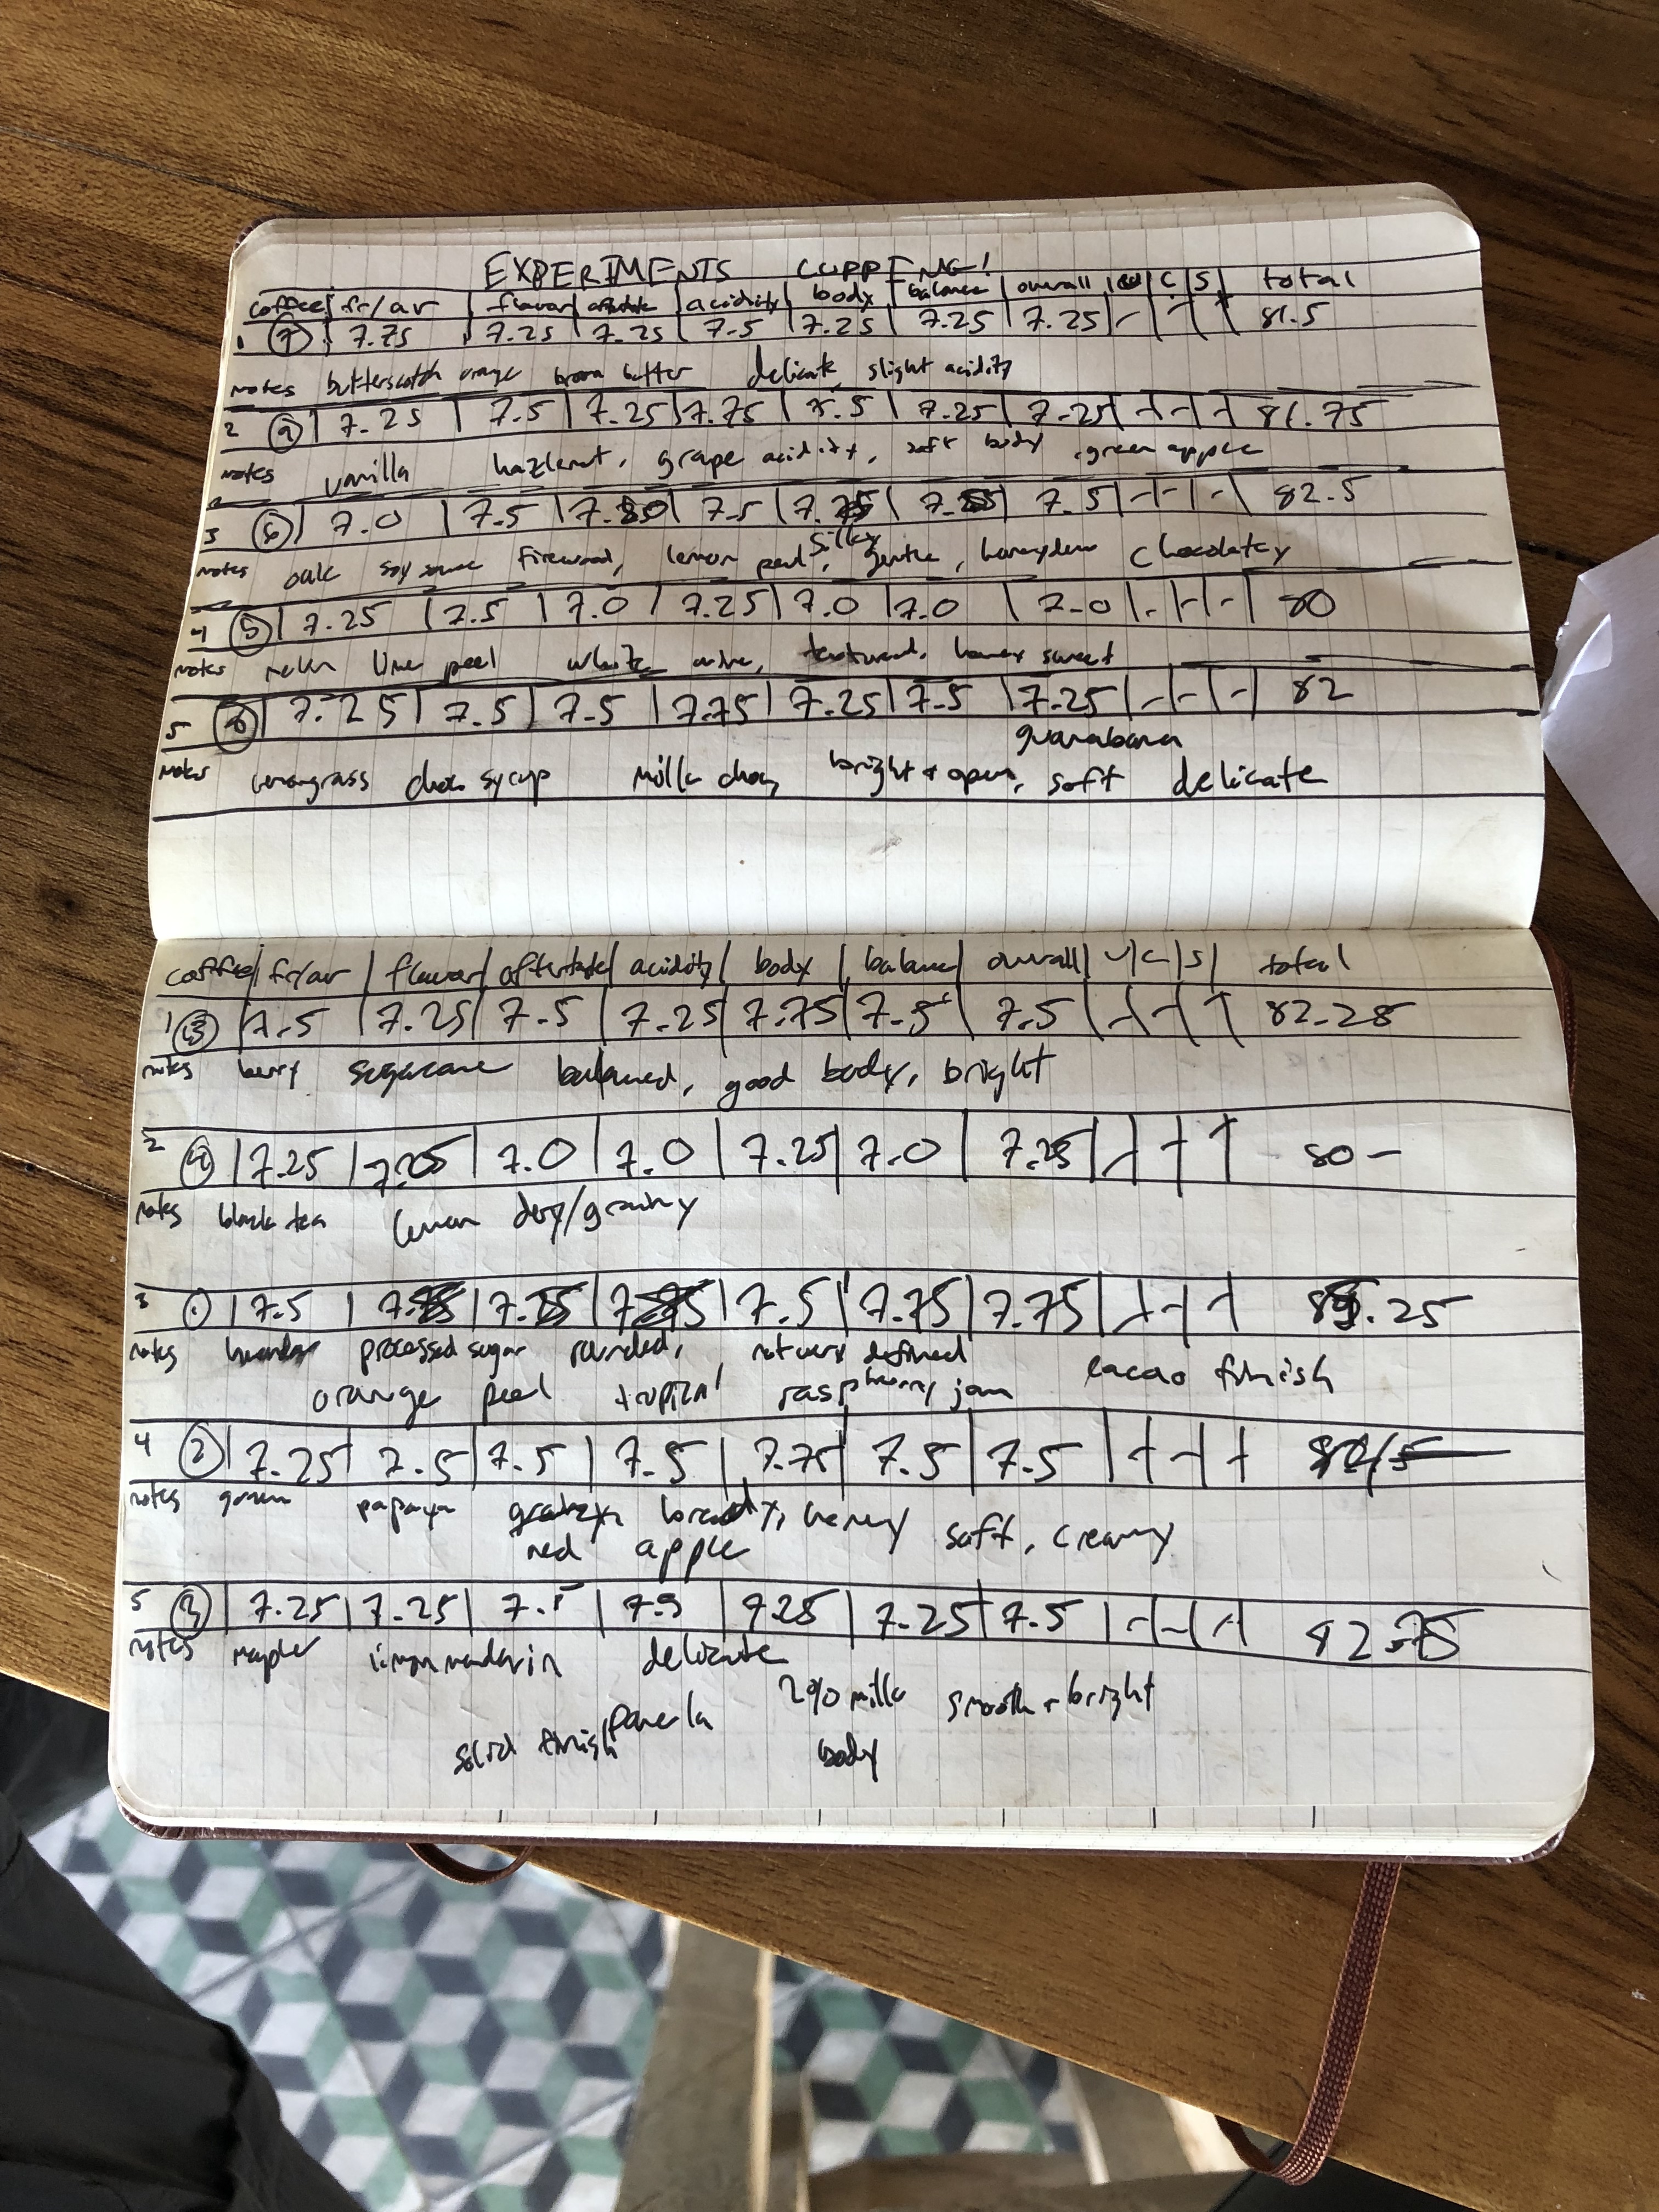 EXPERIMENTS CUPPING!
coffee fr/ar flavor aftertaste acidity body balance overall C S total
1 7 7.75 7.25 7.25 7.5 7.25 7.25 7.25 81.5
notes butterscotch orange brown butter delicate, slight acidity
2 9 7.25 7.5 7.25 7.75 7.5 7.25 7.25 81.75
notes vanilla hazlenut, grape acidity, soft body, green apple
3 7.0 7.5 7.5 7.5 82.5
silky
notes oak soy sauce firewood, lemon peel, gentle, honeydew chocolatey
4 5 7.25 7.5 7.0 7.25 7.0 7.0 7.0 80
notes melon lime peel white wine, textured, honey sweet
5 7.25 7.5 7.5 7.75 7.25 7.5 7.25 82
guanabana
notes lemongrass choc syrup milk choc, bright + open, soft delicate
coffee fr/ar flavor aftertaste acidity body balance overall U C S total
1 7.5 7.25 7.5 7.25 7.75 7.5 7.5 82.25
notes berry sugarcane balanced, good body, bright
2 7.25 7.0 7.0 7.25 7.0 80 -
notes black tea lemon dry/grainy
3 1 7.5 7.5 7.75 7.75 .25
notes processed sugar rounded, not very defined cacao finish
orange peel tropical raspberry jam
4 2 7.25 7.5 7.5 7.5 7.75 7.5 7.5
notes green papaya honey soft, creamy
red apple
5 3 7.25 7.25 7.5 7.5 7.25 7.25 7.5 82.75
notes maple mandarin delicate
2% milk smooth + bright
solid finish panela body